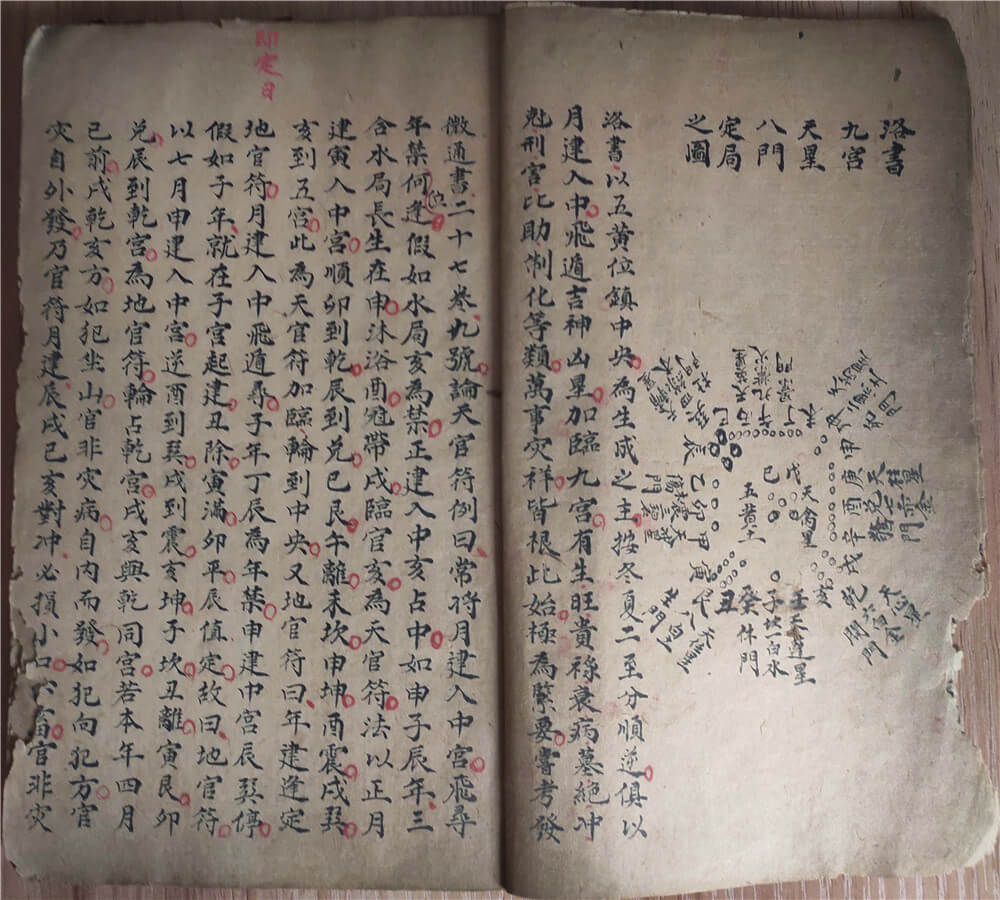 洛書
九宮
天星
八門
定局
之圖
戊
己
天禽星
五黃土
庚酉辛
戌
乾
亥
壬天蓬星
子坎一白水
癸休門
丑
艮
寅
甲
卯
乙
辰
巳
丁
未
申
生門
洛書以五黃位鎮中央為生成之主按冬夏二至分順逆俱以
月建入中飛遁吉神凶星加臨九宮有生旺貴祿衰病墓絕冲
尅刑害比助制化等類萬事灾祥皆根此始極為緊要嘗考發
微通書二十七卷九號論天官符例曰常將月建入中宮飛尋
年禁何逢位假如水局亥為禁正建入中亥占中如申子辰年三
合水局長生在申沐浴酉冠帶戌臨官亥為天官符法以正月
建寅入中宮順卯到乾辰到兌巳艮午離未坎申坤酉震戌巽
亥到五宮此為天官符加臨輪到中央又地官符曰年建逢定
即定日
地官符月建入中飛遁尋子年丁辰為年禁申建中宮辰巽停
假如子年就在子宮起建丑除寅滿卯平辰值定故曰地官符
以七月申建入中宮逆酉到巽戌到震亥坤子坎丑離寅艮卯
兌辰到乾宮為地官符輪占乾宮戌亥與乾同宮若本年四月
已前戌乾亥方如犯坐山官非灾病自内而發如犯向犯方官
灾自外發乃官符月建辰戌巳亥對冲必損小口六畜官非灾